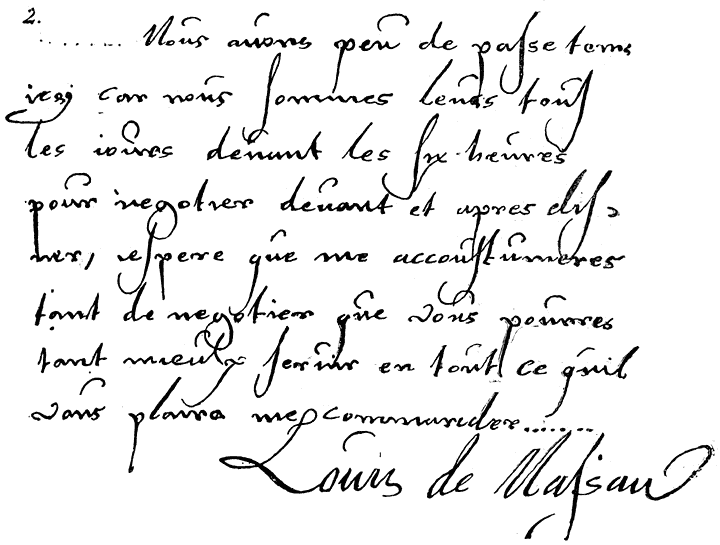 2.
....... Nous auons peu de passe tems
icy car nous sommes leués tous
les iours deuant les six heures
pour negotier deuant et apres dis-
ner, iespere que me accoustumeres
tant de negotier que vous pourres
tant mieulx seruir en tout ce quil
vous plaira me commander.......
Louis de Nassau